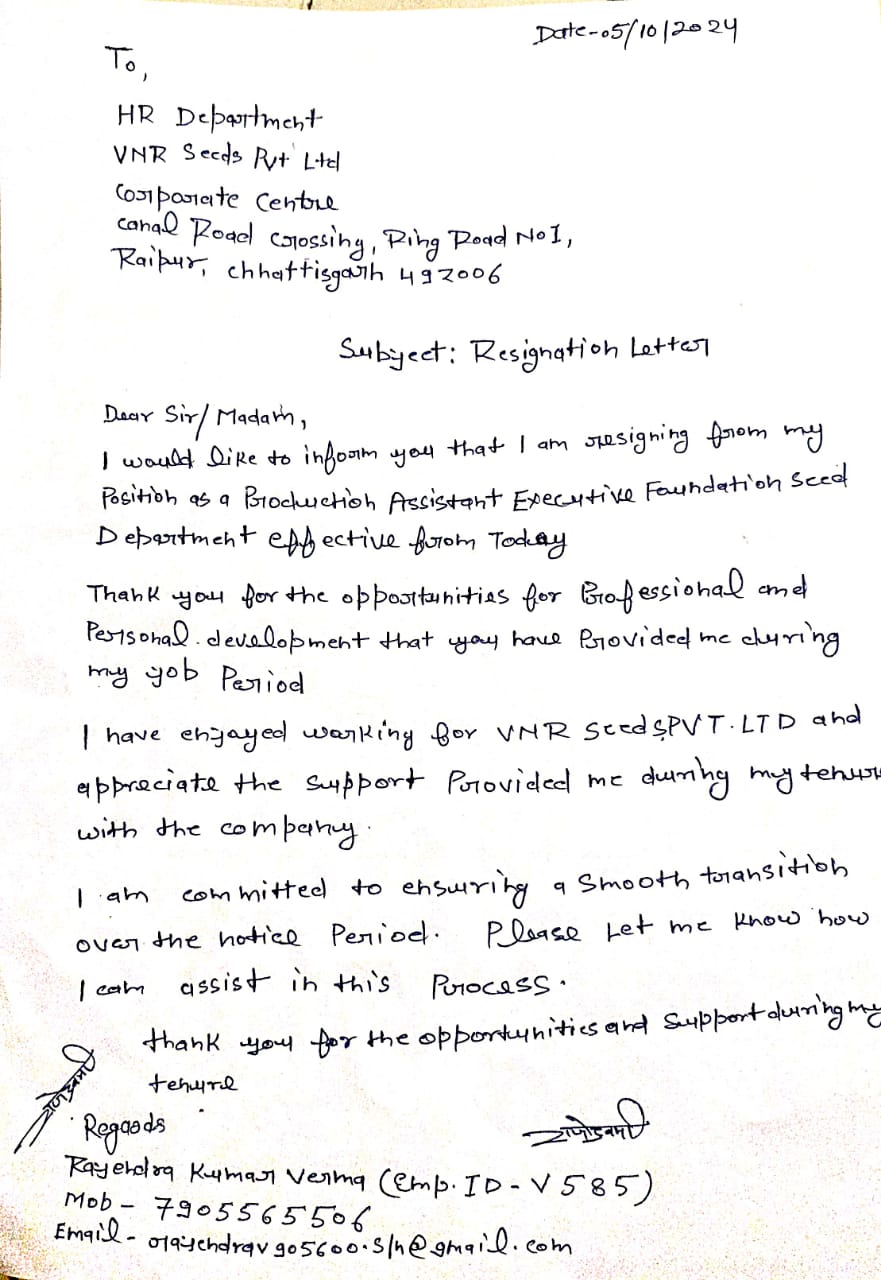 Date-05/10/2024
To,
HR Department
VNR Seeds Pvt Ltd
Corporate Centre
Canal Road Crossing, Ring Road No 1,
Raipur, Chhattisgarh 492006
Subject: Resignation Letter
Dear Sir/Madam,
I would like to inform you that I am resigning from my
Position as a Production Assistant Executive Foundation Seed
Department effective from Today
Thank you for the opportunities for Professional and
Personal development that you have Provided me during
my job Period
I have enjoyed working for VNR Seeds PVT.LTD and
appreciate the support Provided me during my tenure
with the company.
I am committed to ensuring a smooth transition
over the notice Period. Please Let me know how
I can assist in this Process.
thank you for the opportunities and support during my
tenure
Regards
Rajendra Kumar Verma (Emp. ID - V585)
Mob - 7905565506
Email -